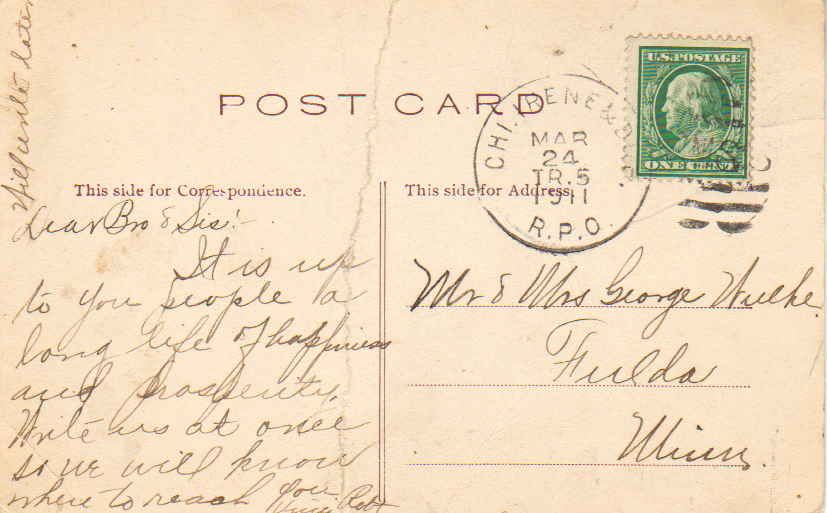 Will write later
POST CARD
U.S. POSTAGE
ONE CENT
CHI.
MAR
24
TR.5
1911
R.P.O.
This side for Correspondence.
This side for Address.
Dear Bro & Sis:-
It is up
to you people a
long life of happiness
and prosperity.
Write us at once
so we will know
where to reach you.
Robt
Mr & Mrs George Wilke
Fulda
Minn.